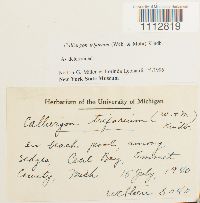 1112819
Calliergon trifarium (Web. & Mohr) Kindb.
As determined
New York State Museum
Herbarium of the University of Michigan
Calliergon trifarium (W. & M.)
Kindb.
on beach pools among
sedges, Cecil Bay, Emmet
County, Mich. 15 July, 1980